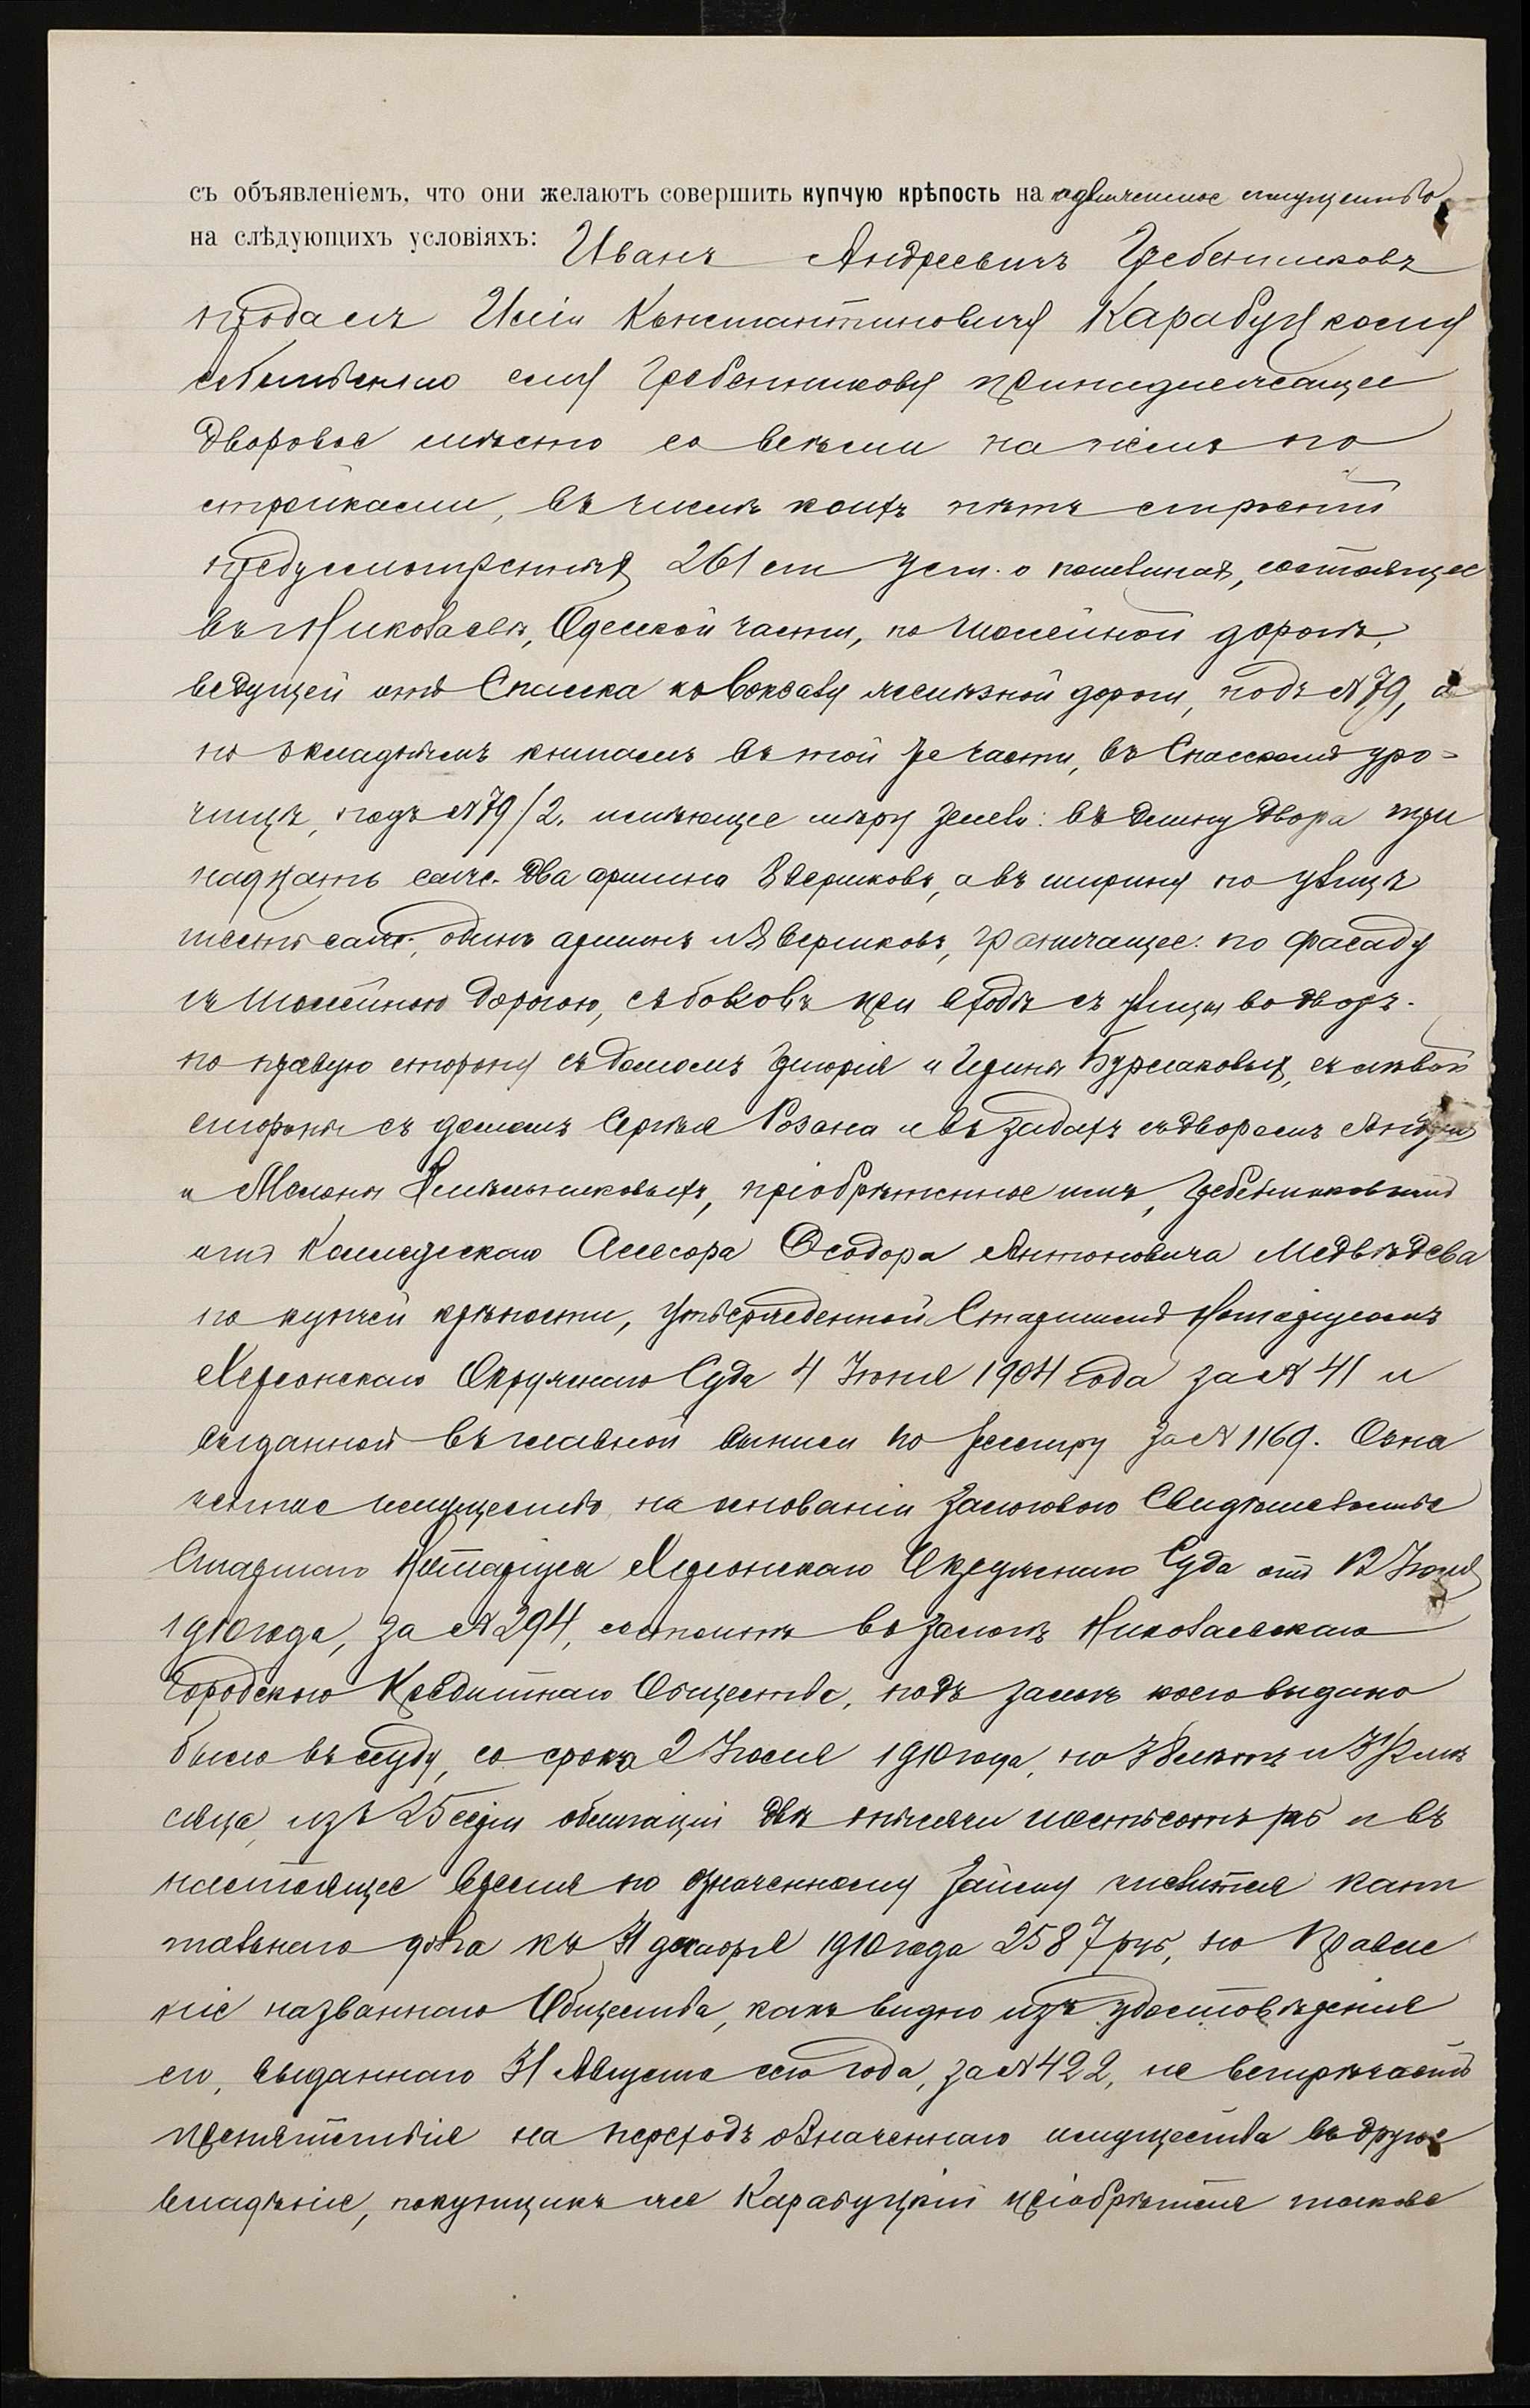 съ объявленіемъ, что они желаютъ совершить купчую крѣпость на недвижимое имущество
на слѣдующихъ условіяхъ: Иванъ Андреевичъ Гребенниковъ
продалъ Константиновичу Карабуцкому
собственно ему Гребенникову принадлежащее
дворовое мѣсто со всѣми на нёмъ по
стройками, въ числѣ коихъ нѣтъ строеній
предусмотрѣнныхъ 261 ст Уст. о пошлинахъ, состоящее
въ г Николаевѣ, Одесской части, по Шоссейной дорогѣ,
ведущей отъ Спасска къ вокзалу желѣзной дороги, подъ №79, а
по окладнымъ книгамъ въ той же части, въ Спасскомъ уро-
чищѣ, подъ №79/2. имѣющее мѣру земли: въ длину двора три
надцать саж. два аршина 8 вершковъ, а въ ширину по улицѣ
шесть саж. одинъ аршинъ и 8 вершковъ, граничащее: по фасаду
съ Шоссейною дорогою, съ боковъ при входѣ съ улицы во дворъ.
по правую сторону съ домомъ Григорія и Ирины Бурлаковыхъ, съ лѣвой
стороны съ домомъ Сергѣя Розана и въ задахъ съ дворомъ Андрея
и Меланіи, пріобрѣтенное имъ, Гребенниковымъ
отъ Коллежскаго Асессора Ѳеодора Антоновича Медвѣдева
по купчей крѣпости, утвержденной Старшимъ Нотаріусомъ
Херсонскаго Окружнаго Суда 4 Іюня 1904 года за № 41 и
выданной въ главной выписи по реестру за № 1169. Озна
ченное имущество, на основаніи залогового Свидѣтельства
Старшаго Нотаріуса Херсонскаго Окружнаго Суда отъ 12 Іюня
1910 года, за № 294, состоитъ въ залогѣ Николаевскаго
Городского Кредитнаго Общества, подъ залогъ коего выдано
было въ ссуду, со срока 2 Іюля 1910 года, на лѣтъ и мѣ
сяца, изъ 25 серіи облигацій двѣ тысячи шестьсотъ руб и въ
настоящее время по означенному займу числится капи
тальнаго долга къ 31 декабря 1910 года 2587 руб, но Правле
ніе названнаго Общества, какъ видно изъ удостовѣренія
его, выданнаго 31 Августа сего года, за № 422, не встрѣчаетъ
препятствія на переходъ означеннаго имущества въ другое
владѣніе, покупщикъ же Карабуцкій пріобрѣтая таковое